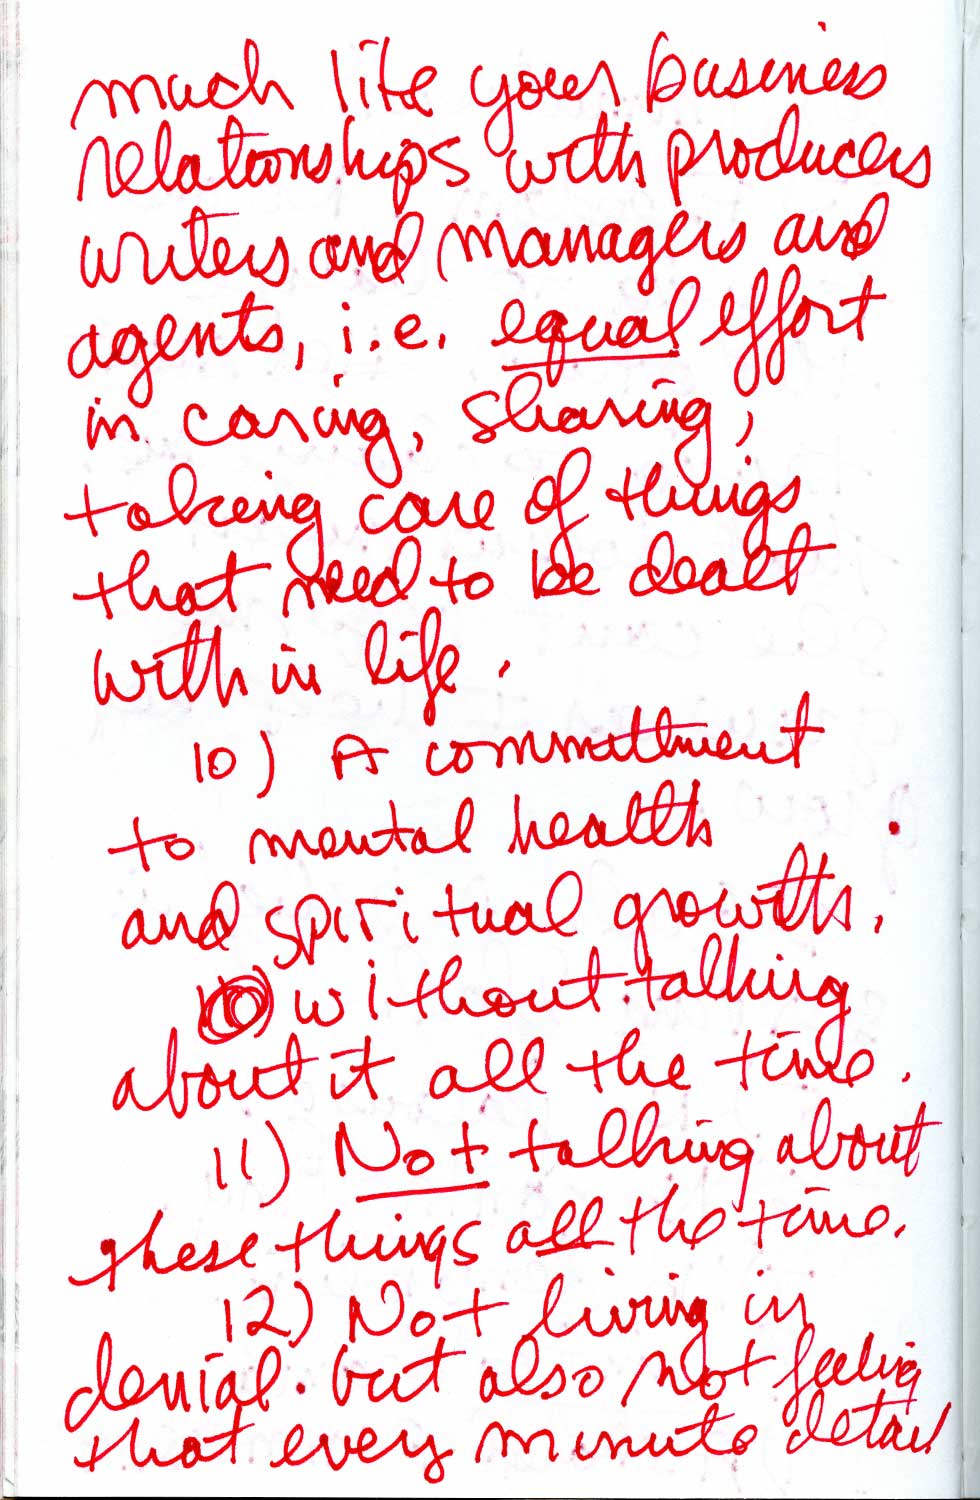 much like your business
relationships with producers
writers and managers and
agents, i.e. equal effort
in caring, sharing,
taking care of things
that need to be dealt
with in life.
10) A committment
to mental health
and spiritual growth.
10) without talking
about it all the time.
11) Not talking about
these things all the time.
12) Not living in
denial. but also not feeling
that every minute detail